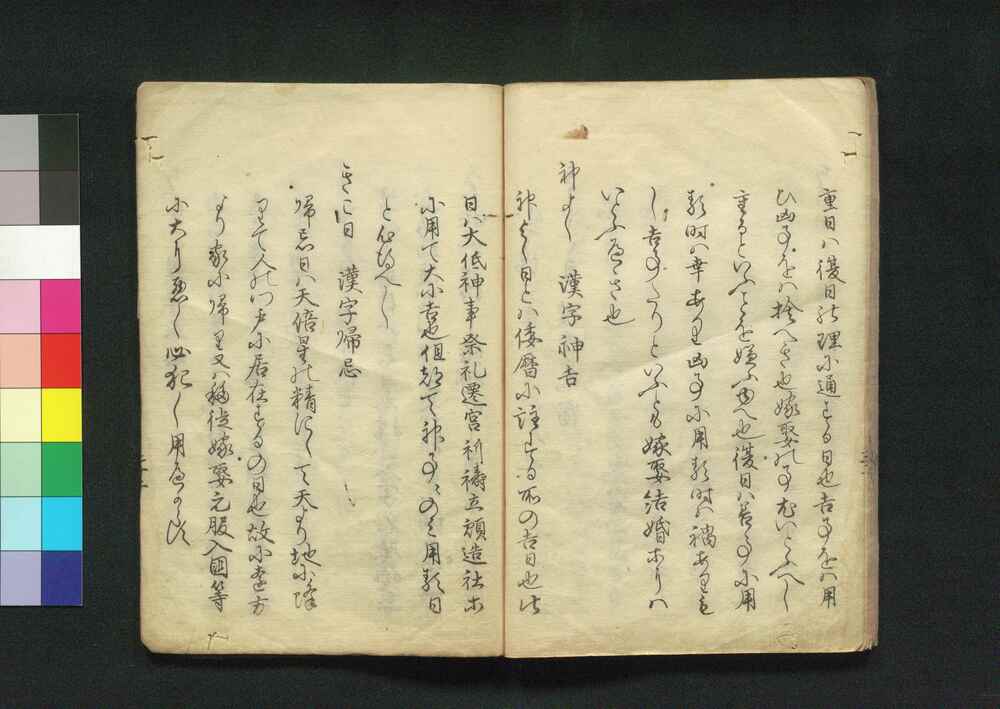 重日ハ復日の理に通する日也吉事をハ用
ひ凶事をハ捨へき也嫁娶の事尤いとふへし
重るといふことを嫌ふ故也復日ハ善事に用
る時ハ幸あり凶事に用る時ハ禍ありと
し吉事たりといふとも嫁娶結婚ホりハ
いふへきさ也
神よし　漢字神吉
神よし日とハ倭暦に註する所の吉日也此
日ハ大低神事祭礼遷宮祈祷立願造社ホ
に用て大に吉也但都て神事ミのミ用る日
と心得へし
きこ日　漢字帰忌
帰忌日ハ天倍星の精にして天より地に降
りて人の門戸に居在するの日也故に遠方
より家に帰り又ハ移徙嫁娶元服入国等
に大に悪し必犯し用へからす